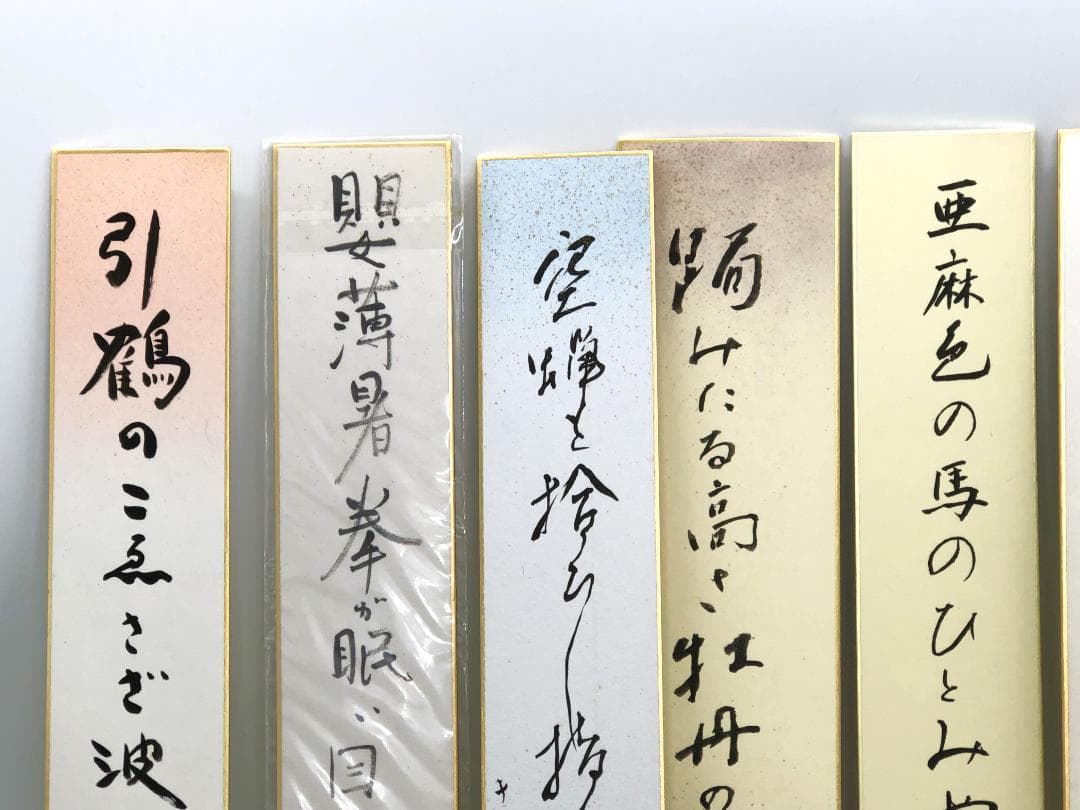 亜麻色の馬のひとみや
跼みたる高さ牡丹の
空蟬を拾ひし指
嬰薄暑拳が眠い
引鶴のこゑさざ波